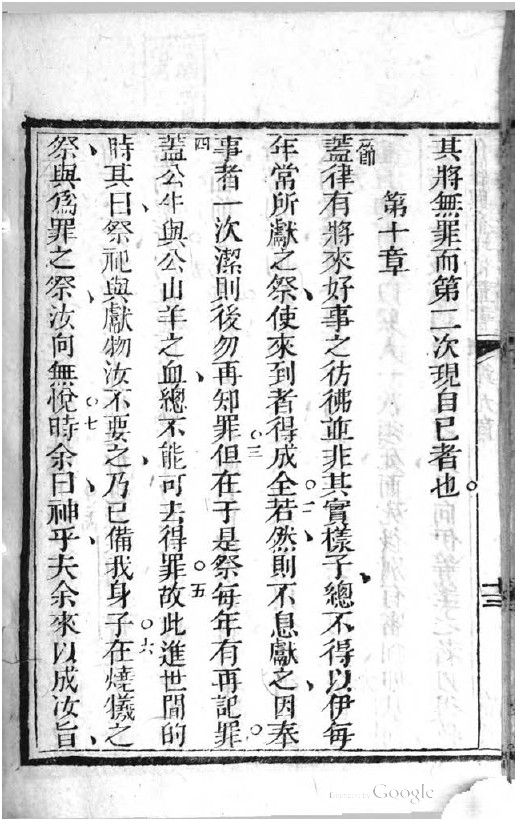 其將無罪而第二次現自己者也。
第十章
節
蓋律有將來好事之彷彿並非其實樣子總不得以伊每
年常所獻之祭使來到者得成全。二若然則不息獻之因奉
事者一次潔則後勿再知罪。三但在于是祭每年有再記罪。
四蓋公牛與公山羊之血總不能可去得罪。五故此進世間的
時其曰祭祀與獻物汝不要之乃已備我身子。六在燒犧之
祭與為罪之祭汝向無悅。七時余曰神乎夫余來以成汝旨
十三
Digitized by Google